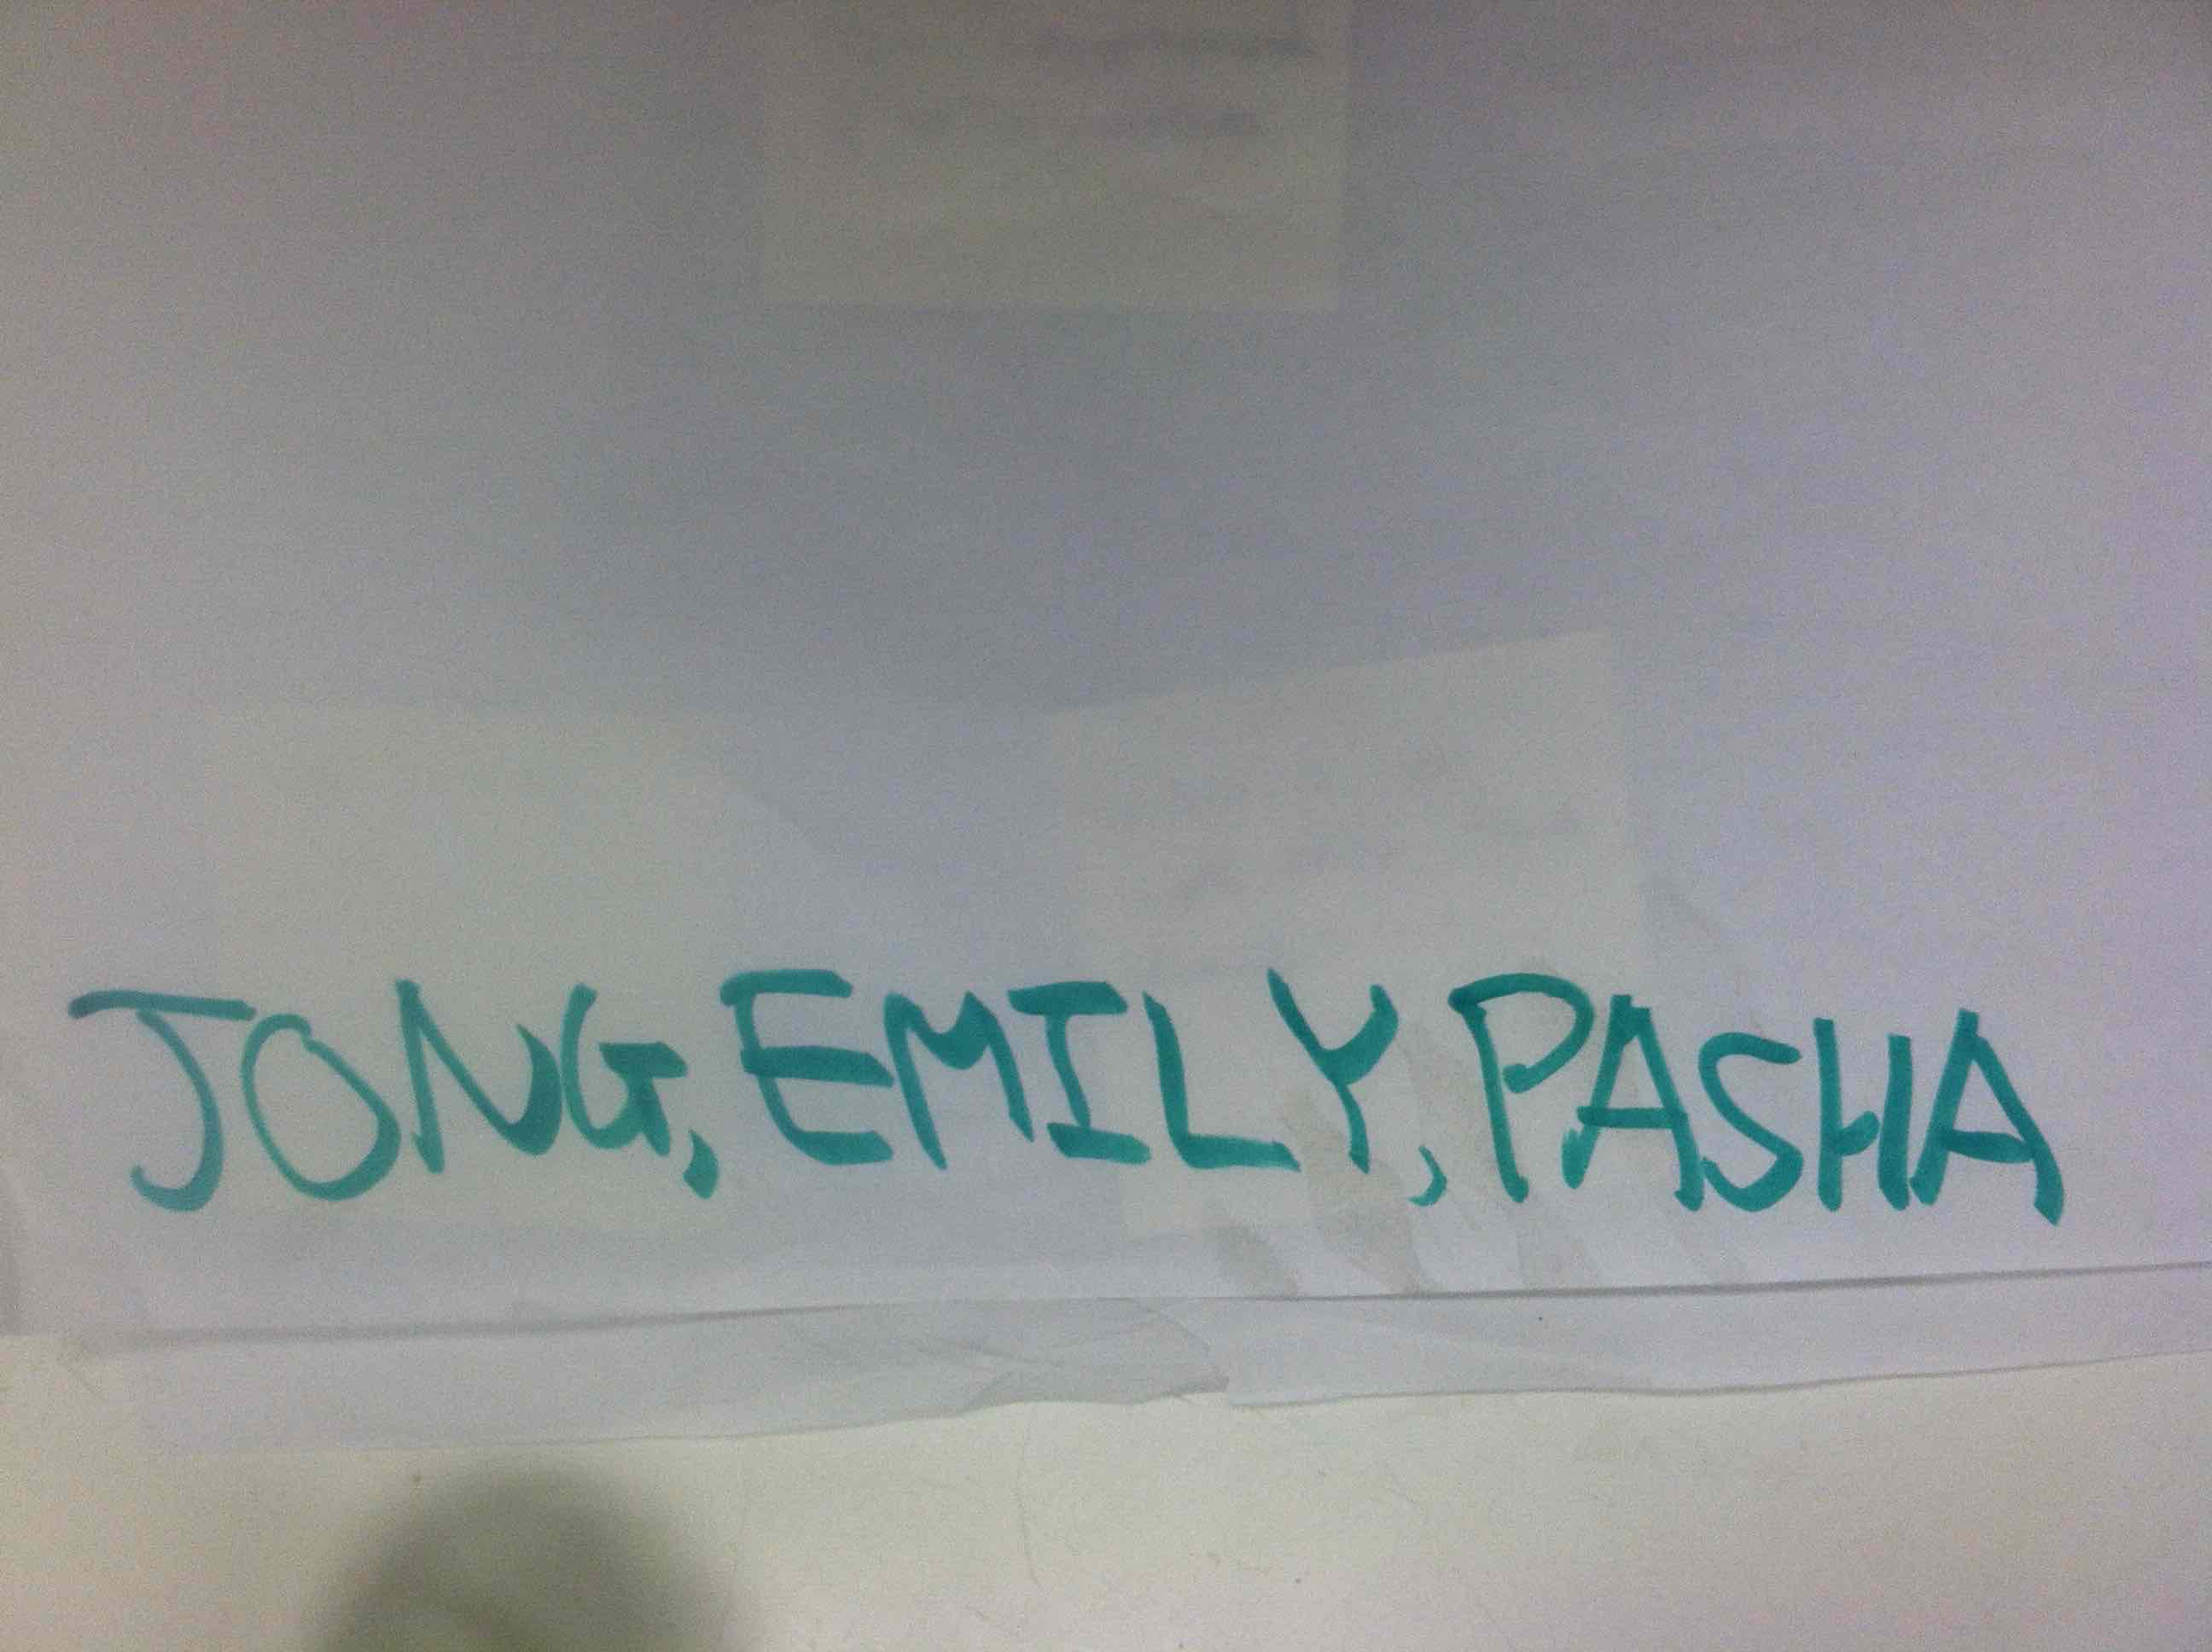 JONG, EMILY, PASHA